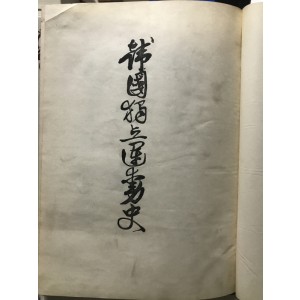 韓國獨立運動史